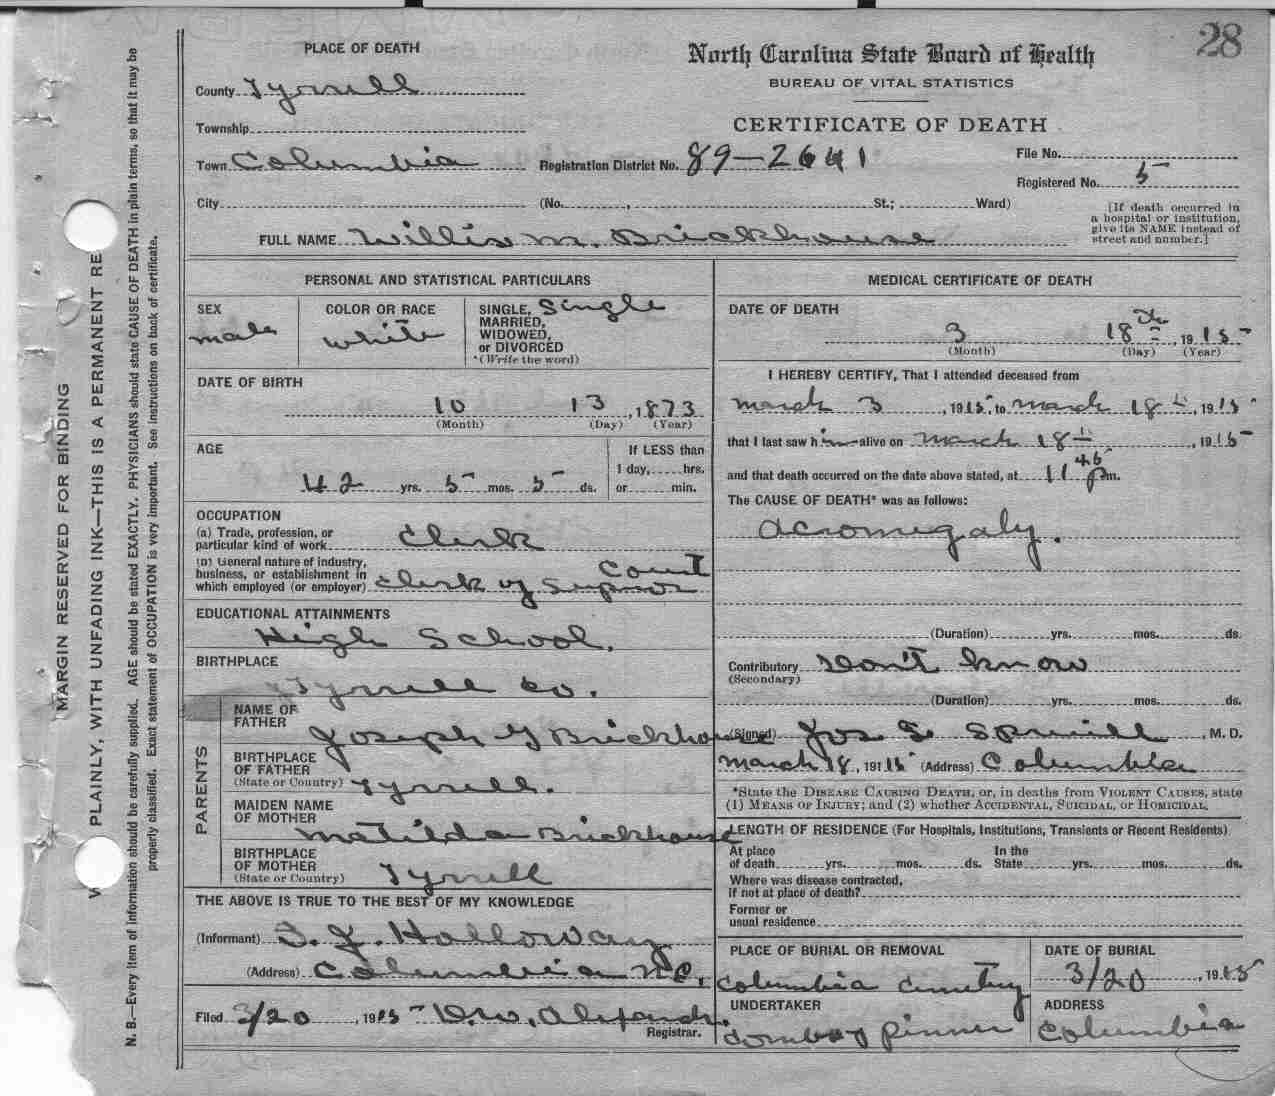 28
PLACE OF DEATH
County Tyrrell
Township
Town Columbia
City
North Carolina State Board of Health
BUREAU OF VITAL STATISTICS
CERTIFICATE OF DEATH
Registration District No. 89-2641
File No.
Registered No. 5
(No. , St.; Ward)
[If death occurred in
a hospital or institution,
give its NAME instead of
street and number.]
FULL NAME Willis M. Brickhouse
PERSONAL AND STATISTICAL PARTICULARS
SEX
male
COLOR OR RACE
white
SINGLE, Single
MARRIED,
WIDOWED,
or DIVORCED
(Write the word)
DATE OF BIRTH
10 13, 1873
(Month) (Day) (Year)
AGE
42 yrs. 5 mos. 5 ds.
If LESS than
1 day, hrs.
or min.
OCCUPATION
(a) Trade, profession, or
particular kind of work Clerk
(b) General nature of industry,
business, or establishment in Court
which employed (or employer) Clerk of Superior
EDUCATIONAL ATTAINMENTS
High School.
BIRTHPLACE
Tyrrell Co.
PARENTS
NAME OF
FATHER Joseph G Brickhouse
BIRTHPLACE
OF FATHER
(State or Country) Tyrrell.
MAIDEN NAME
OF MOTHER Matilda Brickhouse
BIRTHPLACE
OF MOTHER
(State or Country) Tyrrell
THE ABOVE IS TRUE TO THE BEST OF MY KNOWLEDGE
(Informant) Holloway
(Address) Columbia N.C.
Filed 3/20, 1915 D.W.
Registrar.
MEDICAL CERTIFICATE OF DEATH
DATE OF DEATH
3 18th, 1915
(Month) (Day) (Year)
I HEREBY CERTIFY, That I attended deceased from
March 3, 1915, to March 18th, 1915
that I last saw him alive on March 18th, 1915
and that death occurred on the date above stated, at 11 45 pm.
The CAUSE OF DEATH* was as follows:
Acromegaly.
(Duration) yrs. mos. ds.
Contributory Don't know
(Secondary)
(Duration) yrs. mos. ds.
(Signed) Jos Spruill, M. D.
March 18, 1915 (Address) Columbia
*State the DISEASE CAUSING DEATH, or, in deaths from VIOLENT CAUSES, state
(1) MEANS OF INJURY; and (2) whether ACCIDENTAL, SUICIDAL, or HOMICIDAL.
LENGTH OF RESIDENCE (For Hospitals, Institutions, Transients or Recent Residents)
At place
of death yrs. mos. ds.
In the
State yrs. mos. ds.
Where was disease contracted,
if not at place of death?
Former or
usual residence
PLACE OF BURIAL OR REMOVAL
Columbia Cemetery
DATE OF BURIAL
3/20, 1915
UNDERTAKER
Pinner
ADDRESS
Columbia
MARGIN RESERVED FOR BINDING
PLAINLY, WITH UNFADING INK—THIS IS A PERMANENT RE
N. B.—Every item of information should be carefully supplied. AGE should be stated EXACTLY. PHYSICIANS should state CAUSE OF DEATH in plain terms, so that it may be
properly classified. Exact statement of OCCUPATION is very important. See instructions on back of certificate.